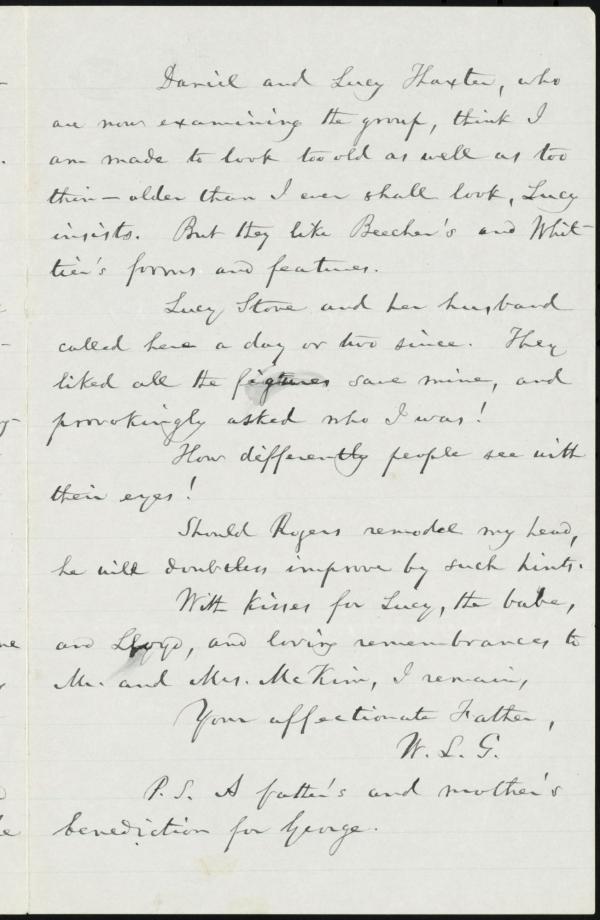 Daniel and Lucy Thaxter, who
are now examining the group, think I
am made to look too old as well as too
thin — older than I ever shall look, Lucy
insists. But they like Beecher's and Whit-
tier's forms and features.
Lucy Stone and her husband
called here a day or two since. They
liked all the figures save mine, and
provokingly asked who I was!
How differently people see with
their eyes!
Should Rogers remodel my head,
he will doubtless improve by such hints.
With kisses for Lucy, the babe,
and Lloyd, and loving remembrances to
Mr. and Mrs. McKim, I remain,
Your affectionate Father,
W. L. G.
P. S. A father's and mother's
benediction for George.